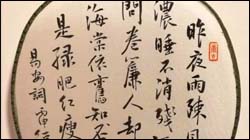 昨夜雨疎風
濃睡不消殘
問卷簾人却
海棠依舊知否
是綠肥紅瘦
易安詞